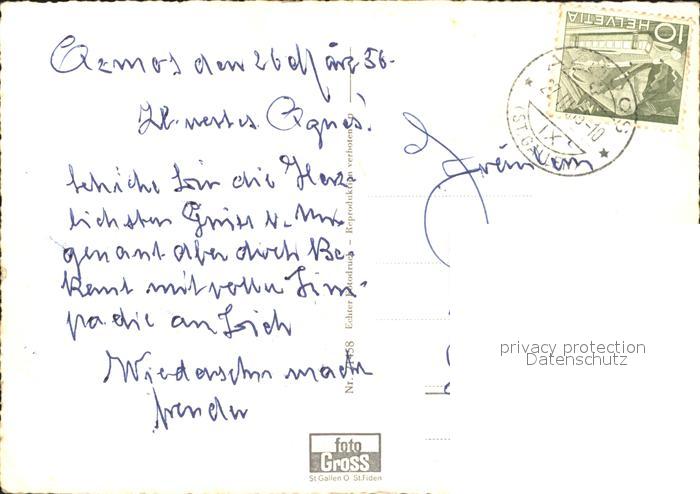 Azmos den 26 März 56.
Lb. wertes Agnes!
schicke Dir die Herz
lichsten Grüss u. Un
genant aber doch Be
kant mit voller Sim-
padie an Dich
Wiedersehn macht
freuder
Fräulein
HELVETIA
10
AZMOS
(ST. GALLEN)
Echter Fotodruck – Reproduktion verboten
foto
Gross
St Gallen O St.Fiden
privacy protection
Datenschutz